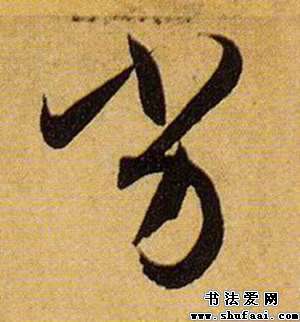 劣
书法爱网
www.shufaai.com